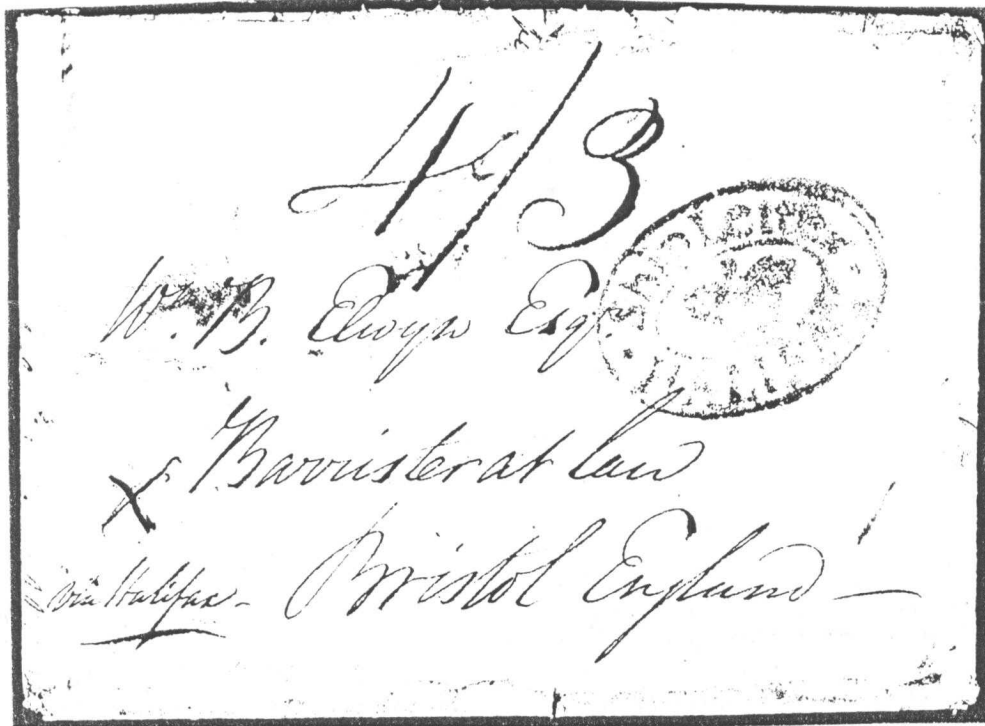 4/3
Wm. B. Elwyn Esqr.
Barrister at law
via Halifax - Bristol England -